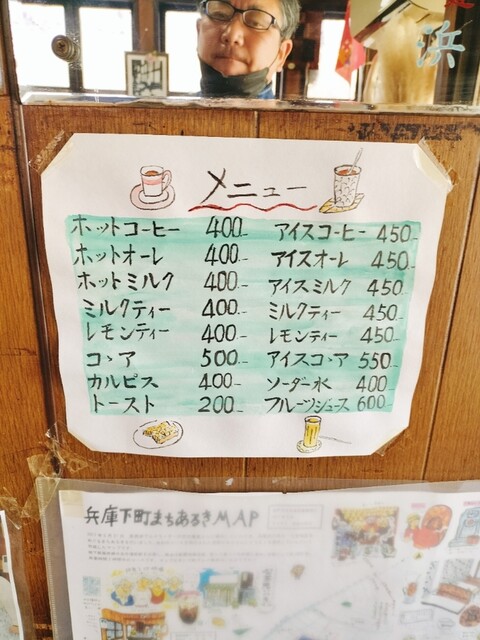 浜
メニュー
ホットコーヒー 400- アイスコーヒー 450-
ホットオーレ 400- アイスオーレ 450-
ホットミルク 400- アイスミルク 450-
ミルクティー 400- ミルクティー 450-
レモンティー 400- レモンティー 450-
コヽア 500- アイスコヽア 550-
カルピス 400- ソーダー水 400-
トースト 200- フルーツジュース 600-
兵庫下町まちあるきMAP